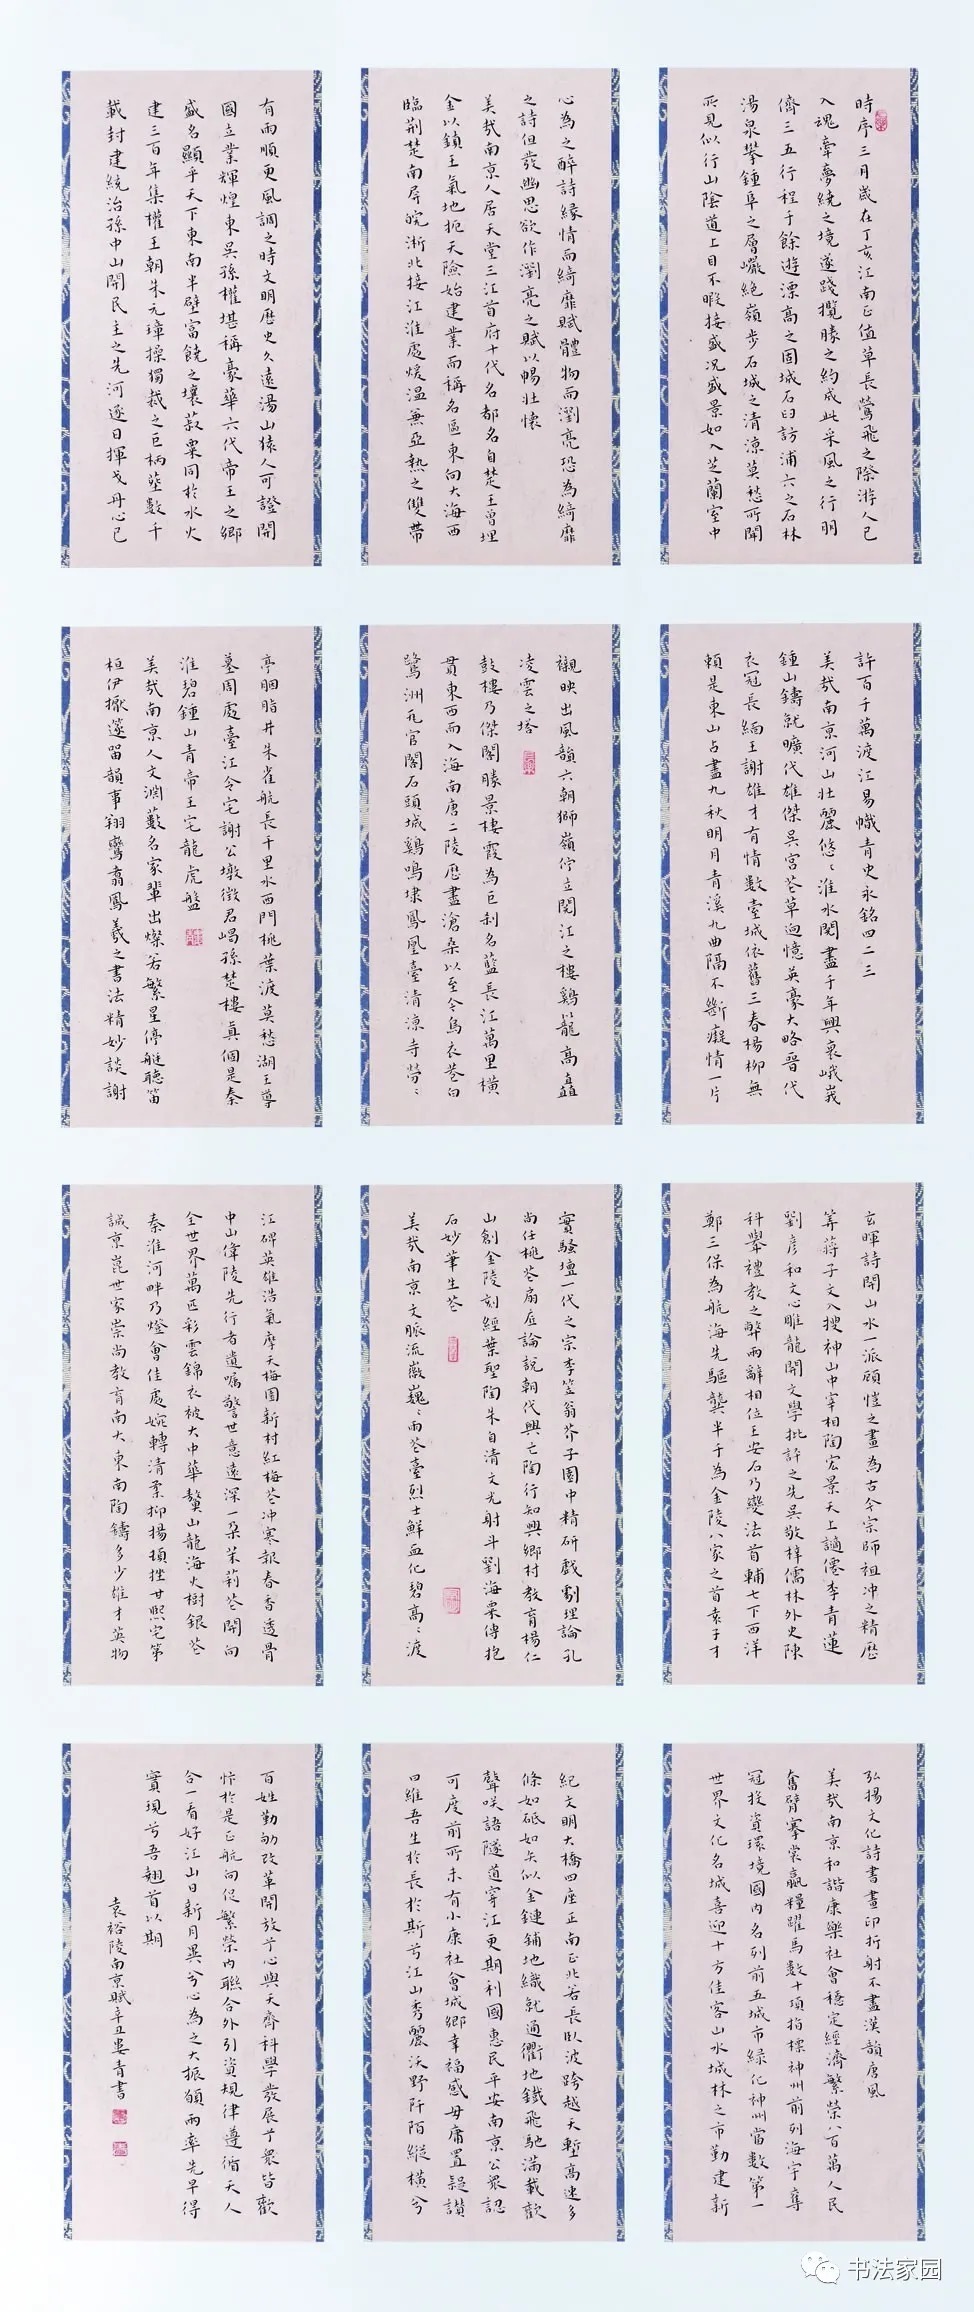 時序三月歲在丁亥江南正值草長鶯飛之際游人已
入魂牽夢繞之境遂踐攬勝之約成此采風之行朋
儕三五行程千餘遊漂高之固城石臼訪浦六之石林
湯泉攀鍾阜之層巘絕嶺步石城之清涼莫愁所聞
所見似行山陰道上目不暇接盛况盛景如入芝蘭室中
心為之醉詩緣情而綺靡賦體物而瀏亮恐為綺靡
之詩但發幽思欲作瀏亮之賦以暢壯懷
美哉南京人居天堂三江首府十代名都名自楚王曾埋
金以鎮王氣地扼天險始建業而稱名區東向大海西
臨荆楚南屏皖浙北接江淮處煖溫兼亞熱之雙帶
有雨順更風調之時文明歷史久遠湯山猿人可證開
國立業輝煌東吳孫權堪稱豪華六代帝王之鄉
盛名顯乎天下東南半壁富饒之壤菽粟同於水火
建三百年集權王朝朱元璋操獨裁之巨柄壟數千
載封建統治孫中山開民主之先河逐日揮戈丹心已
許百千萬渡江易幟青史永銘四二三
美哉南京河山壯麗悠悠淮水閱盡千年興衰峨峩
鍾山鑄就曠代雄傑吳宮花草迴憶英豪大略晉代
衣冠長緬王謝雄才有情數臺城依舊三春楊柳無
賴是東山占盡九秋明月青溪九曲隔不斷癡情一片
襯映出風韻六朝獅嶺佇立閱江之樓鷄籠高矗
凌雲之塔
鼓樓乃傑閣勝景棲霞為巨刹名藍長江萬里橫
貫東西而入海南唐二陵歷盡滄桑以至今烏衣巷白
鷺洲瓦官閣石頭城鷄鳴埭鳳凰臺清涼寺勞勞
亭胭脂井朱雀航長千里水西門桃葉渡莫愁湖王導
墓周處臺江令宅謝公墩徵君碣孫楚樓真個是秦
淮碧鍾山青帝王宅龍虎盤
美哉南京人文淵藪名家輩出燦若繁星停艇聽笛
桓伊擫篴留韻事翔鸞翥鳳羲之書法精妙談謝
玄暉詩開山水一派顧愷之畫為古今宗師祖冲之精歷
筭蔣子文入搜神山中宰相陶宏景天上謫僊李青蓮
劉彥和文心雕龍開文學批評之先吳敬梓儒林外史陳
科舉禮教之弊兩辭相位王安石乃變法首輔七下西洋
鄭三保為航海先驅龔半千為金陵八家之首袁子才
實騷壇一代之宗李笠翁芥子園中精研戲劇理論孔
尚任桃花扇底論說朝代興亡陶行知興鄉村教育楊仁
山創金陵刻經葉聖陶朱自清文光射斗劉海粟傅抱
石妙筆生花
美哉南京文脈流嶶巍巍雨花臺烈士鮮血化碧高高渡
江碑英雄浩氣摩天梅園新村紅梅花冲寒報春香透骨
中山偉陵先行者遺囑警世意遠深一朵茉莉花開向
全世界萬匹彩雲錦衣被大中華鰲山龍海火樹銀花
秦淮河畔乃燈會佳處婉轉清柔抑揚頓挫甘熙宅第
誠京崑世家崇尚教育南大東南陶鑄多少雄才英物
弘揚文化詩書畫印折射不盡漢韻唐風
美哉南京和諧康樂社會穩定經濟繁榮八百萬人民
奮臂搴裳贏糧躍馬數十項指標神州前列海宇奪
冠投資環境國內名列前五城市綠化神州當數第一
世界文化名城喜迎十方佳客山水城林之市勤建新
紀文明大橋四座正南正北若長臥波跨越天塹高速多
條如砥如矢似金鏈鋪地織就通衢地鐵飛馳滿載歡
聲咲語隧道穿江更期利國惠民平安南京公衆認
可度前所未有小康社會城鄉幸福感毋庸置疑讚
曰維吾生於長於斯兮江山秀麗沃野阡陌縱橫兮
百姓勤劬改革開放兮心與天齊科學發展兮衆皆歡
忭於是正航向促繁榮內聯合外引資規律遵循天人
合一看好江山日新月異兮心為之大振願兩率先早得
實現兮吾翹首以期
袁裕陵南京賦辛丑婁青書
书法家园